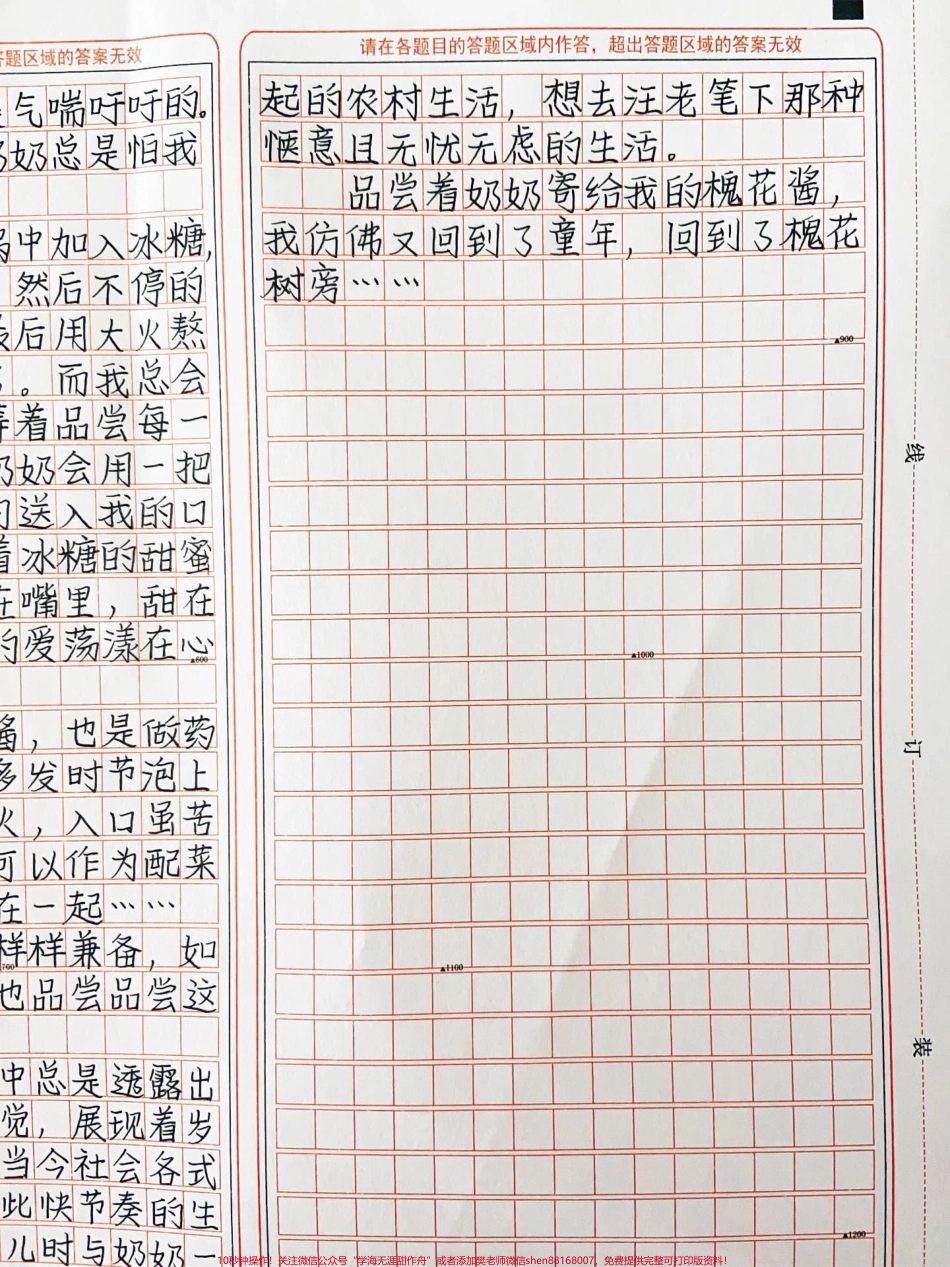 答题区域的答案无效
气喘吁吁的。
奶总是怕我
中加入冰糖,
然后不停的
后用大火熬
。而我总会
着品尝每一
奶奶会用一把
送入我的口
着冰糖的甜蜜
在嘴里，甜在
的爱荡漾在心
▲600
酱，也是做药
发时节泡上
火，入口虽苦
可以作为配菜
在一起……
样样兼备，如
700
也品尝品尝这
中总是透露出
觉，展现着岁
当今社会各式
此快节奏的生
儿时与奶奶一
请在各题目的答题区域内作答，超出答题区域的答案无效
起的农村生活，想去汪老笔下那种
惬意且无忧无虑的生活。
品尝着奶奶寄给我的槐花酱，
我仿佛又回到了童年，回到了槐花
树旁……
▲900
▲1000
▲1100
▲1200
线
订
装
10秒钟操作！关注微信公众号“学海无涯甜作舟”或者添加樊老师微信shen88168007，免费提供完整可打印版资料！